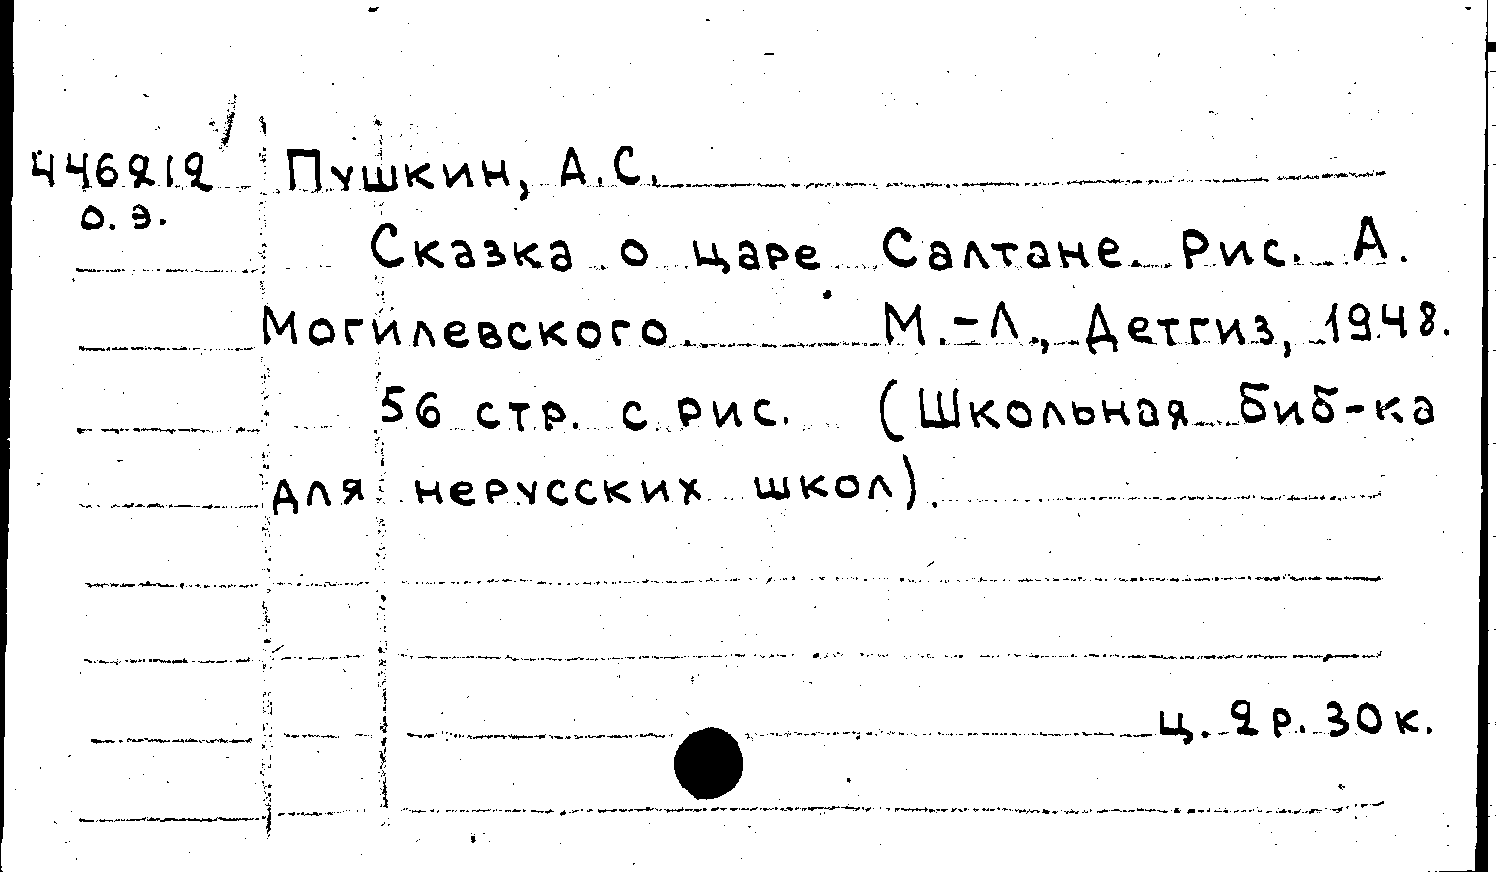 446212 Пушкин, А.С.
о.э.
Сказка о царе Салтане. Рис. А.
Могилевского. М.-Л., Детгиз, 1948.
56 стр. с рис. (Школьная биб-ка
для нерусских школ).
ц. 2 р. 30 к.